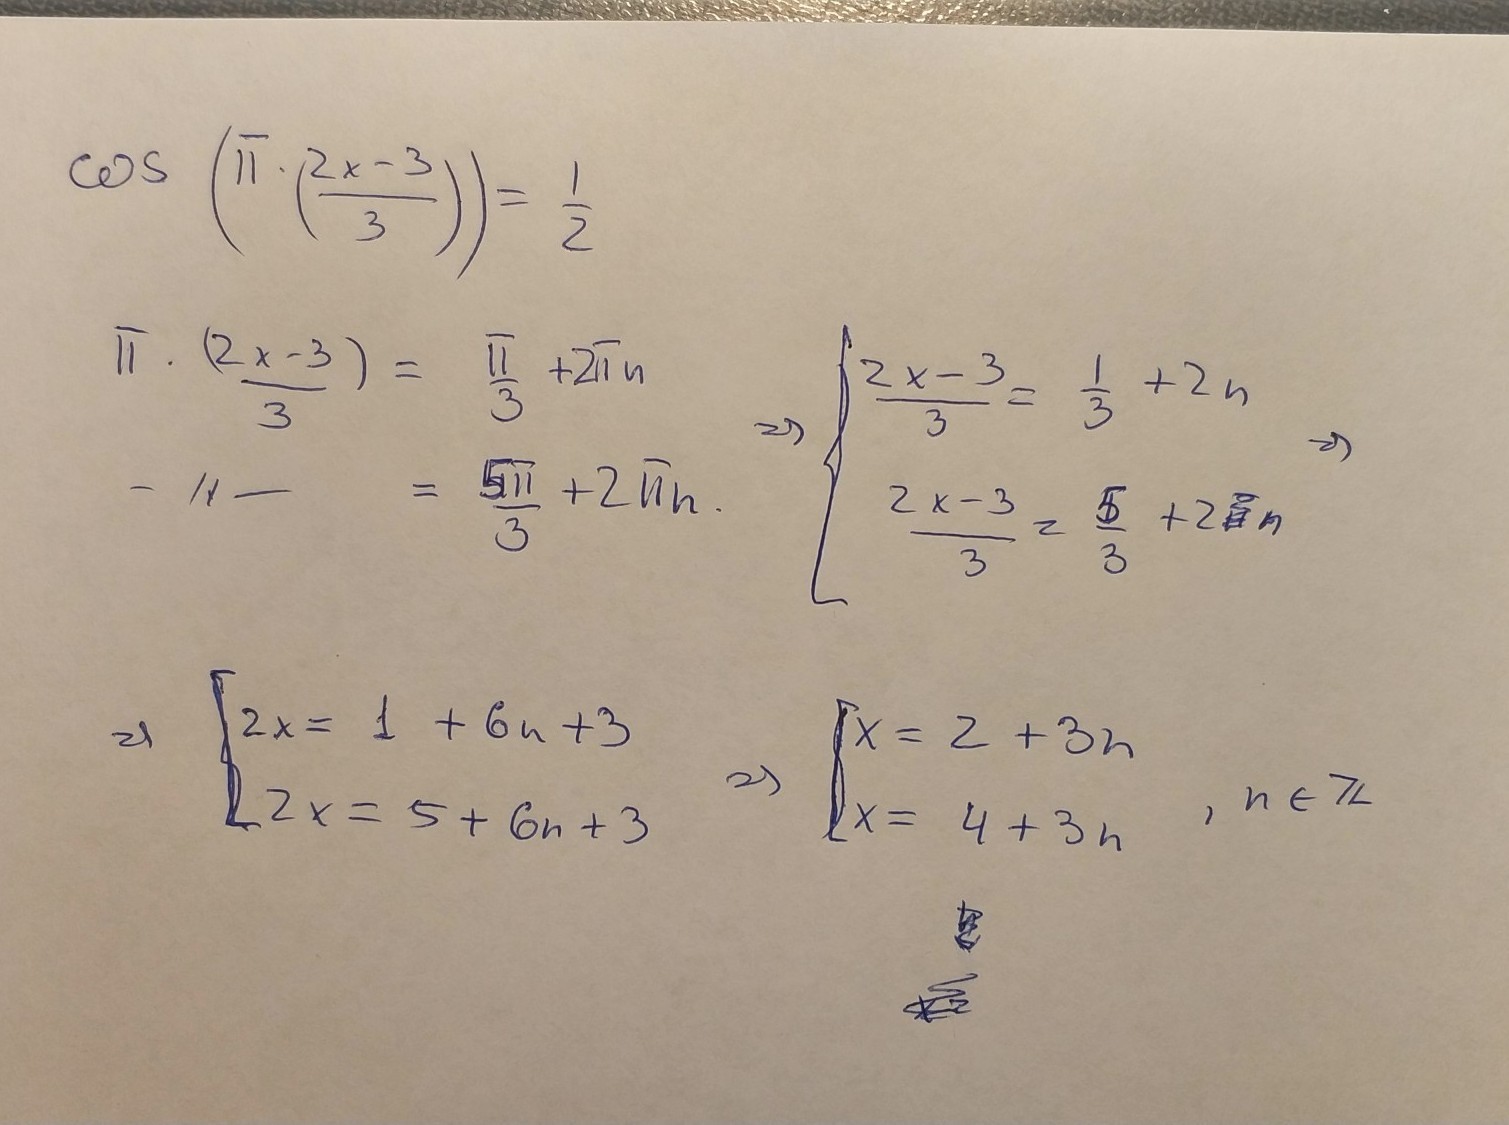 cos (π · ((2x-3)/3)) = 1/2
π · ((2x-3)/3) = π/3 + 2πn
- 〃 — = 5π/3 + 2πn.
=> { (2x-3)/3 = 1/3 + 2n
(2x-3)/3 = 5/3 + 2n =>
=> [ 2x = 1 + 6n + 3
2x = 5 + 6n + 3
=> [ x = 2 + 3n
x = 4 + 3n , n ∈ ℤ